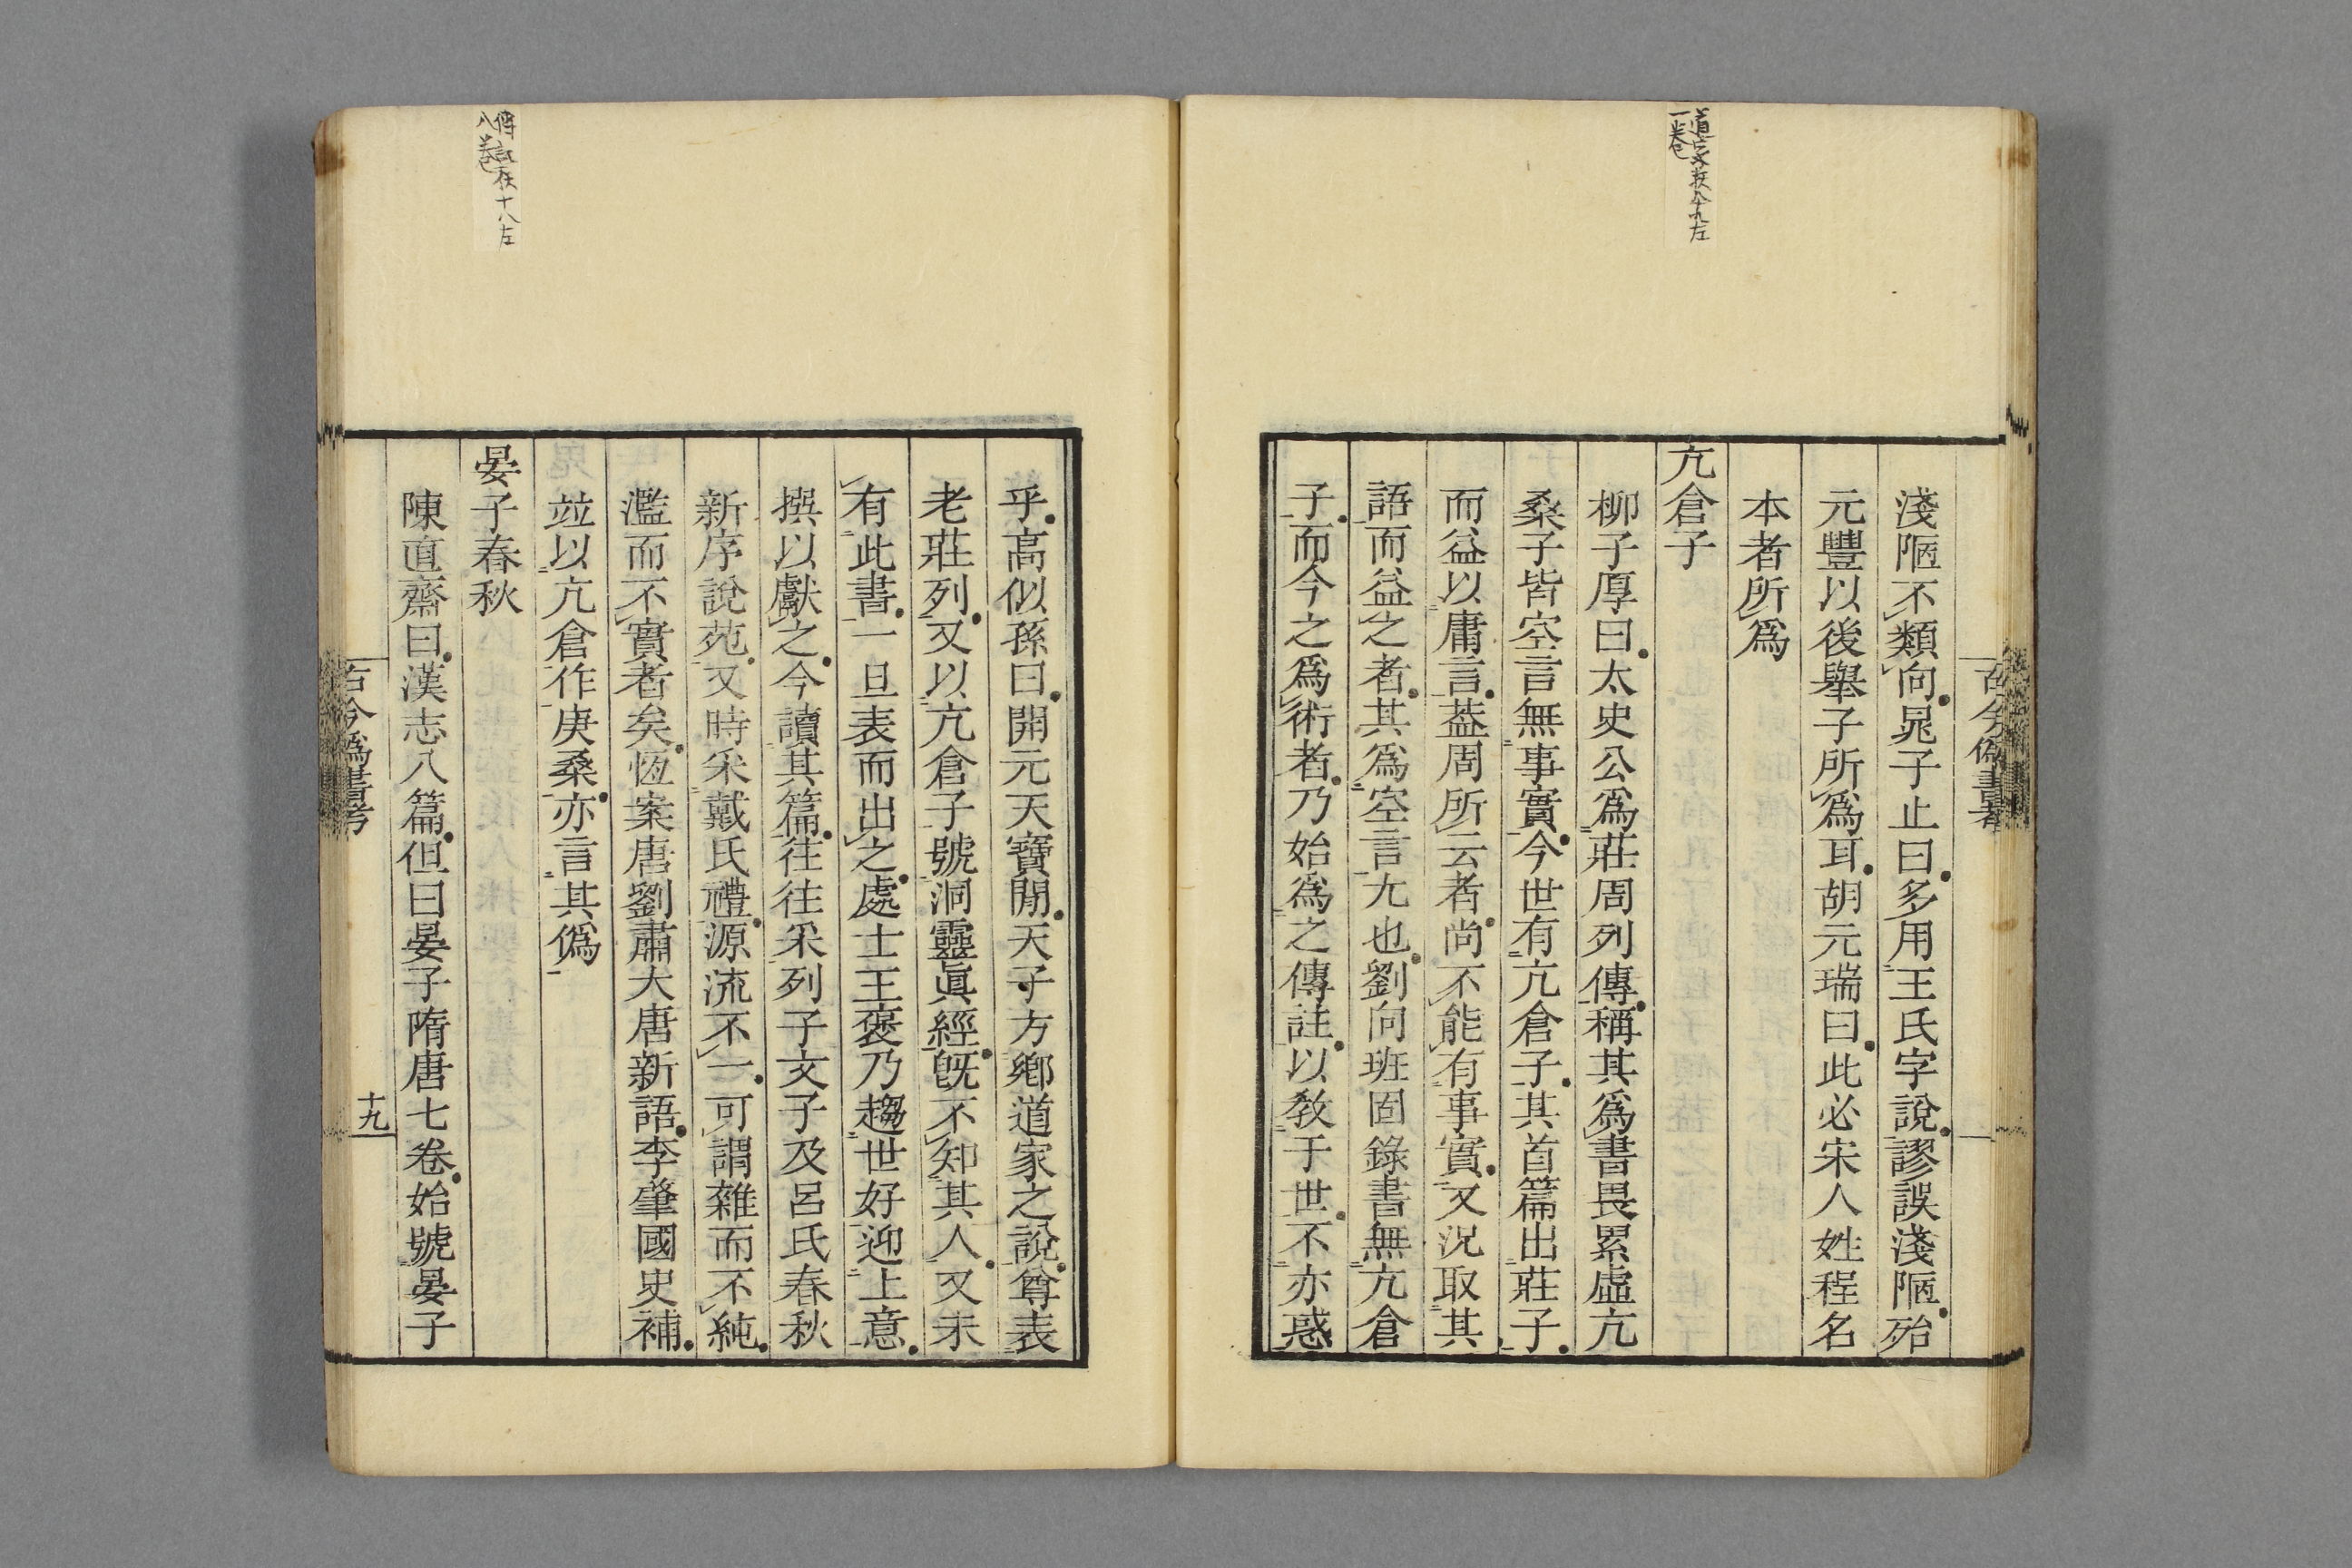 古今僞書考
淺陋不類向晁子止曰多用王氏字說謬誤淺陋殆
元豐以後舉子所爲耳胡元瑞曰此必宋人姓程名
本者所爲
亢倉子
柳子厚曰太史公爲莊周列傳稱其爲書畏累虛亢
桑子皆空言無事實今世有亢倉子其首篇出莊子
而益以庸言葢周所云者尚不能有事實又況取其
語而益之者其爲空言尤也劉向班固錄書無亢倉
子而今之爲術者乃始爲之傳註以敎于世不亦惑
乎高似孫曰開元天寶閒天子方鄉道家之說尊表
老莊列又以亢倉子號洞靈眞經旣不知其人又未
有此書一旦表而出之處士王褒乃趨世好迎上意
撰以獻之今讀其篇往往采列子文子及呂氏春秋
新序說苑又時采戴氏禮源流不一可謂雜而不純
濫而不實者矣恆案唐劉肅大唐新語李肇國史補
竝以亢倉作庚桑亦言其僞
晏子春秋
陳直齋曰漢志八篇但曰晏子隋唐七卷始號晏子
古今僞書考
十九